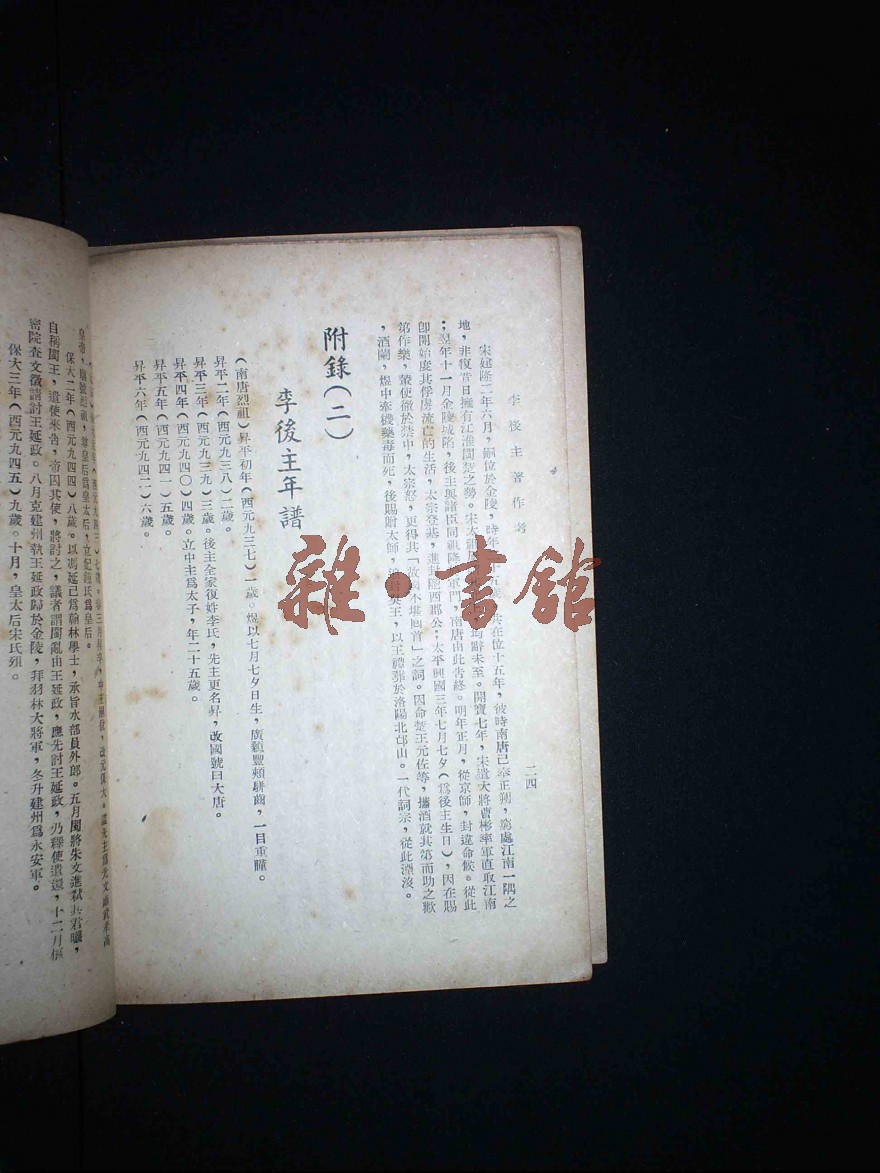 李後主著作考
二四
宋建隆二年六月，嗣位於金陵，時年二十五歲，共在位十五年，彼時南唐已奉正朔，窮處江南一隅之
地，非復昔日擁有江淮閩楚之勢。宋太祖 辭未至。開寶七年，宋遣大將曹彬率軍直取江南
；翌年十一月金陵城陷，後主與諸臣同 軍門，南唐由此告終。明年正月，從京師，封違命候。從此
卽開始度其俘虜流亡的生活，太宗登基，進封隴西郡公；太平興國三年七月七夕（爲後主生日），因在賜
第作樂，聲使徹於禁中，太宗怒，更得其「故國不堪囘首」之詞。因命楚王元佐等，攜酒就其第而助之歡
，酒闌，煜中牽機藥毒而死，後賜贈太師， 王，以王禮葬於洛陽北邙山。一代詞宗，從此湮沒。
附錄（二）
李後主年譜
（南唐烈祖）昇平初年（西元九三七）一歲。煜以七月七夕日生，廣顙豐頰駢齒，一目重瞳。
昇平二年（西元九三八）二歲。
昇平三年（西元九三九）三歲。後主全家復姓李氏，先主更名昇，改國號曰大唐。
昇平四年（西元九四〇）四歲。立中主爲太子，年二十五歲。
昇平五年（西元九四一）五歲。
昇平六年（西元九四二）六歲。
皇帝， 皇后爲皇太后，立妃鍾氏爲皇后。
保大二年（西元九四四）八歲。以馮延己爲翰林學士，承旨水部員外郎。五月閩將朱文進弒其君曦，
自稱閩王，遣使來告，帝囚其使，將討之，議者謂閩亂由王延政，應先討王延政，乃釋使遣還，十二月
密院査文徽請討王延政。八月克建州執王延政歸於金陵，拜羽林大將軍，冬升建州爲永安軍。
保大三年（西元九四五）九歲。十月，皇太后宋氏殂。
雜·書館